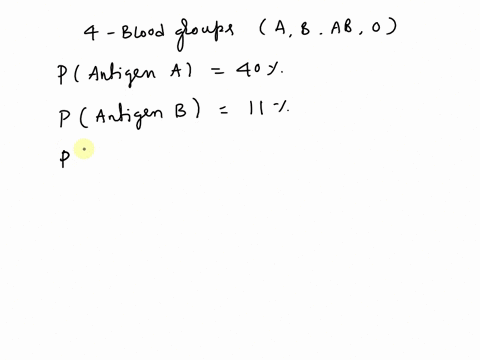 4 - Blood groups ( A, B. AB, O )
P ( Antigen A ) = 40 %.
P ( Antigen B ) = 11 %.
P